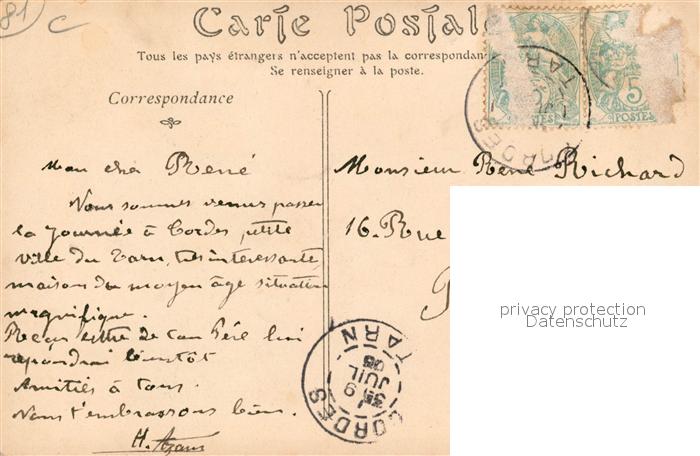 81 C
Carte Postale
Tous les pays étrangers n'acceptent pas la correspondance
Se renseigner à la poste.
Correspondance
5
POSTES
CORDES
TARN
Mon cher René
Monsieur René Richard
Nous sommes venus passer
la journée à Cordes, petite
16. Rue
ville du Tarn, très intéressante,
maison du moyen âge situation
magnifique.
privacy protection
Datenschutz
Reçu lettre de ton Père lui
répondrai bientôt
Amitiés à tous.
Nous t'embrassons bien.
H.
CORDES
TARN
9
JUIL